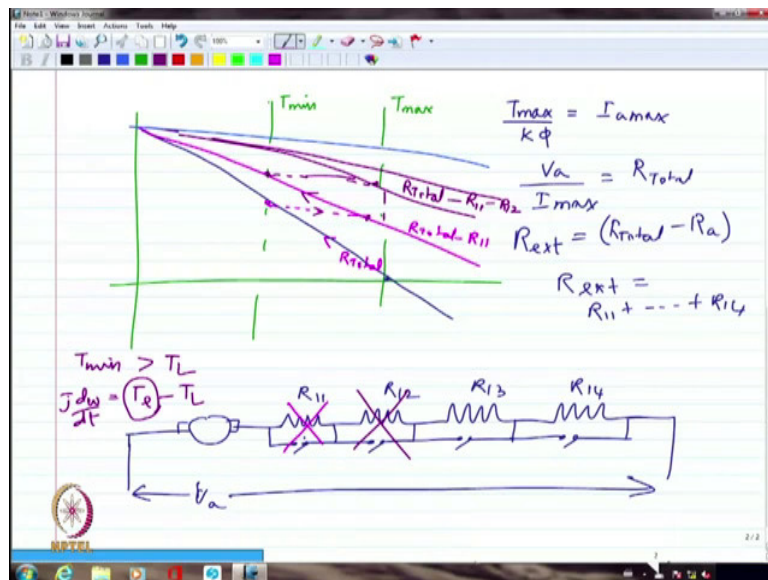 Note1 - Windows Journal
File Edit View Insert Actions Tools Help
100%
B I
Tmin
Tmax
Tmax / Kϕ = Iamax
Va / Imax = RTotal
Rext = (RTotal - Ra)
Rext =
R11 + ---- + R14
RTotal - R11 - R12
RTotal - R11
RTotal
Tmin > TL
J dω/dt = Te - TL
R11 R12 R13 R14
Va
NPTEL
2 / 2